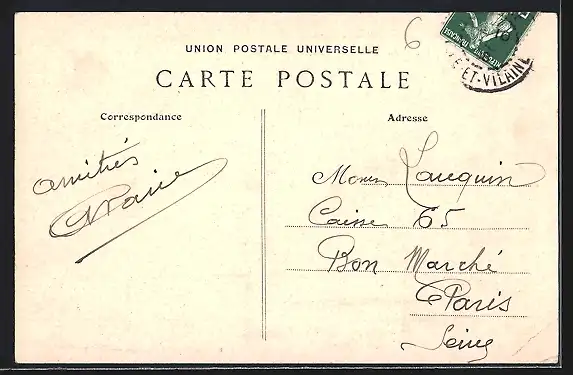 6
UNION POSTALE UNIVERSELLE
CARTE POSTALE
ET-VILAINE
Correspondance
Adresse
amitiés
Monsr Lauquin
Caisse 65
Bon Marché
Paris
Seine